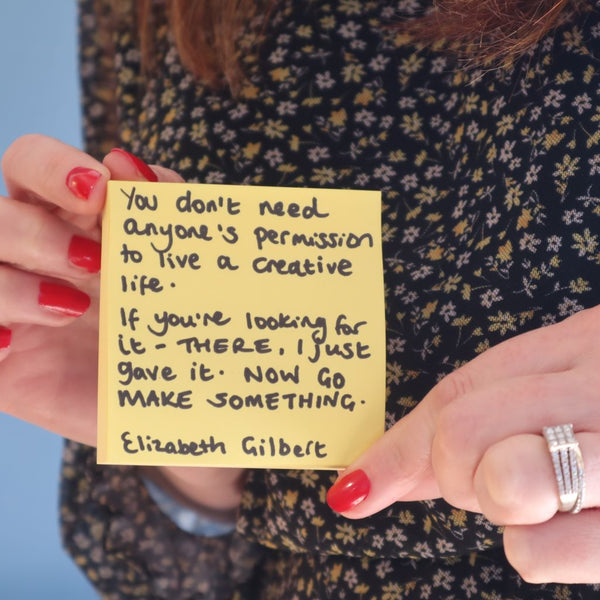 You don't need
anyone's permission
to live a creative
life.
If you're looking for
it - THERE, I just
gave it. NOW GO
MAKE SOMETHING.
Elizabeth Gilbert